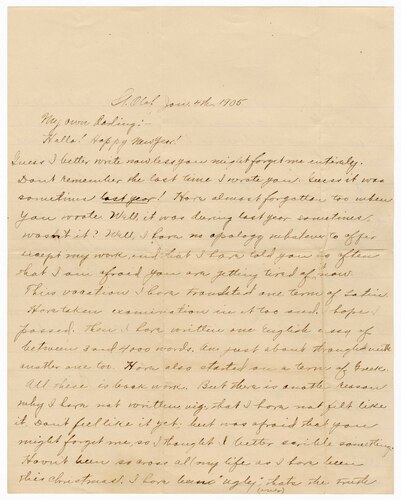 St. Olaf Jan. 4th, 1905
My own Darling:-
Hello! Happy New Year!
Guess I better write now less you might forget me entirely.
Dont remember the last time I wrote you. Guess it was
sometime last year! Have almost forgotten too when
you wrote. Well, it was during last year sometime,
wasn't it? Well, I have no apology whatever to offer
except my work and that I have told you so often
that I am afraid you are getting tired of now.
This vacation I have translated one term of Latin.
Have taken examination in it too and I hope
passed. Then I have written one English essay of
between 3 and 4000 words, on just about though
matter one too. Have also started on a term of Greek.
All these is book work. But there is another reason
why I have not written viz; that I have not felt like
it. Dont feel like it yet, but was afraid that you
might forget me so I thought I better scrible something.
Haven't been so cross all my life as I have been
this Christmas. I have been "ugly" thats the truth
(over)